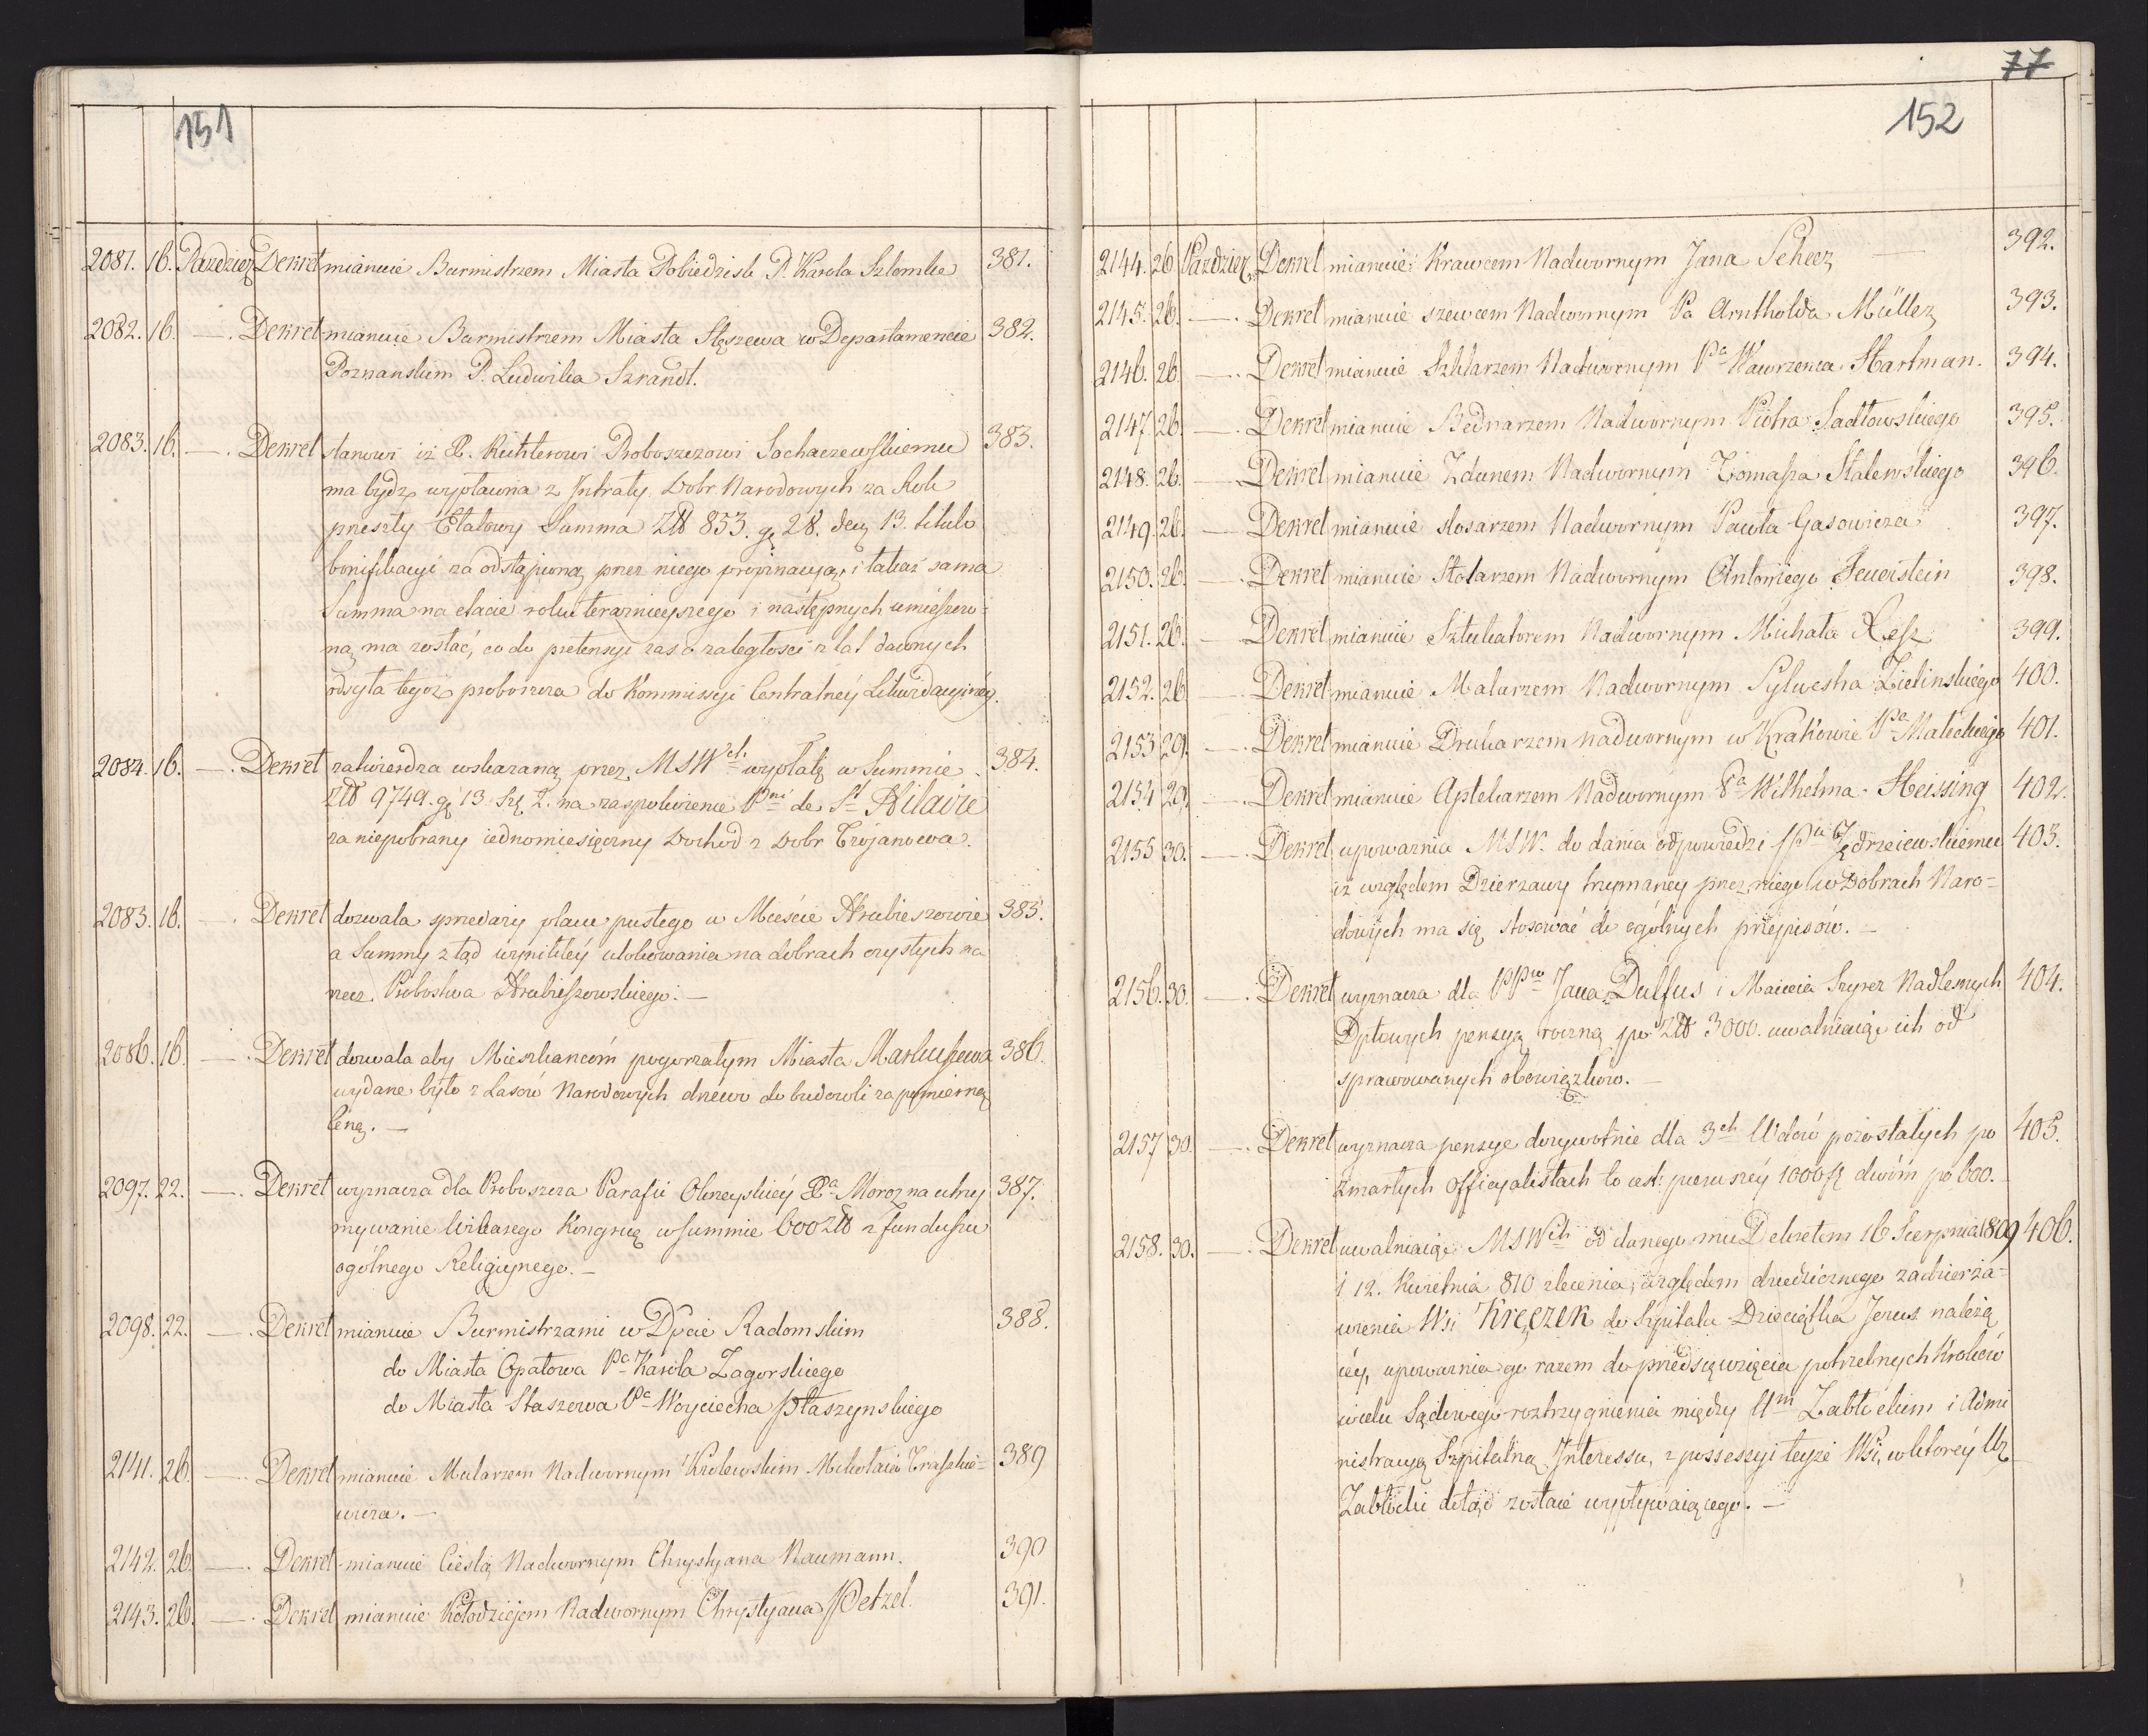 151
2081. 16. Październ. Dekret mianuie Burmistrzem Miasta Pobiedzisk P. Karola Szlomke 381.
2082. 16. —. Dekret mianuie Burmistrzem Miasta Stęszewa w Departamencie 382.
Poznanskim P. Ludwika Szrandt.
2083. 16. —. Dekret stanowi iż X. Richterowi Proboszczowi Sochaczewskiemu 383.
ma bydz wypłacona z Intraty Dobr Narodowych za Rok
przeszły Etatowy Summa Złt 853. gr 28. den 13. titulo
bonifikacyi za odstąpioną przez niego propinacyą, i takaż sama
Summa na etacie roku teraznieyszego i następnych umieszczo=
ną ma zostać, co do pretensyi zas o zaległosci z lat dawnych
odsyła tegoż proboszcza do Kommissyi Centralnéy Likwidacyinéy.
2084. 16. —. Dekret zatwierdza wskazaną przez MSWch wypłatę w Summie 384.
Złt 9749. gr 13. Szę 2. na zaspokoienie Pni de St Hilaire
za niepobrany iednomiesięczny Dochod z Dobr Trojanowa.
2085. 16. —. Dekret dozwala sprzedaży placu pustego w Mieście Hrubieszowie 385.
a Summy ztąd wynikłéy ulokowania na dobrach czystych na
rzecz Probostwa Hrubieszowskiego. —
2086. 16. —. Dekret dozwala aby Mieszkancom pogorzałym Miasta Markuszewa 386.
wydane było z Lasów Narodowych drzewo do budowli za pomierną
Cenę. —
2097. 22. —. Dekret wyznacza dla Proboszcza Parafii Olszeyskiéy Xa Moroz na utrzy 387.
mywanie Wikarego Kongruę w Summie 600 Złt z funduszu
ogólnego Religiynego. —
2098. 22. —. Dekret mianuie Burmistrzami w Dpcie Radomskim 388.
do Miasta Opatowa Pa Karola Zagorskiego
do Miasta Staszowa Pa Woyciecha Ptaszynskiego
2141. 26. —. Dekret mianuie Mularzem Nadwornym Krolewskim Mikołaia Traszkie= 389
wicza. —
2142. 26. —. Dekret mianuie Cieslą Nadwornym Chrystyana Naumann. 390
2143. 26. —. Dekret mianuie Kołodziejem Nadwornym Chrystyana Petzel. 391.
77
152
2144. 26 Październ. Dekret mianuie Krawcem Nadwornym Jana Scheer — 392.
2145. 26. —. Dekret mianuie szewcem Nadwornym Pa Arntholda Müller 393.
2146. 26. —. Dekret mianuie Szklarzem Nadwornym Pa Wawrzenca Hartman. 394.
2147. 26. —. Dekret mianuie Bednarzem Nadwornym Piotra Sadłowskiego 395.
2148. 26. —. Dekret mianuie Zdunem Nadwornym Tomasza Stalewskiego 396.
2149. 26. —. Dekret mianuie slosarzem Nadwornym Pawła Gasowicza 397.
2150. 26. —. Dekret mianuie Stolarzem Nadwornym Antoniego Feuerstein 398.
2151. 26. —. Dekret mianuie Sztukatorem Nadwornym Michała Resz 399.
2152. 26. —. Dekret mianuie Malarzem Nadwornym Sylwestra Zielinskiego 400.
2153 29. —. Dekret mianuie Drukarzem nadwornym w Krakowie Pa Małeckiego 401.
2154 29. —. Dekret mianuie Aptekarzem Nadwornym Pa Wilhelma Heissing 402.
2155 30. —. Dekret upoważnia MSW. do dania odpowiedzi Pu Jędrzeiewskiemu 403.
iż względem Dzierzawy trzymaney przez niego w Dobrach Naro=
dowych ma się stosować do ogólnych przepisów. —
2156. 30. —. Dekret wyznacza dla PPw Jana Dulfus i Macieia Szyrer Nadlesnych 404.
Dptowych pensyą roczną po Złt 3000. uwalniaiąc ich od
sprawowanych obowiązków. —
2157 30. —. Dekret wyznacza pensye dożywotnie dla 3ch Wdów pozostałych po 405.
zmarłych Officyalistach to iest: pierwszéy 1000 fl dwóm po 600. —
2158. 30. —. Dekret uwalniaiąc MSWch od danego mu Dekretem 16 Sierpnia 1809 406.
i 12. Kwietnia 810 zlecenia, względem dziedzicznego zadzierża=
wienia Wsi Kręczek do Szpitala Dzieciątka Jezus należą
céy, upoważnia go razem do przedsięwzięcia potrzebnych Kroków
wzelu Sądowego roztrzygnienia między Um Zabłockim i Admi
nistracyą Szpitalną Interessu, z possessyi teyże Wsi, w ktoréy Ur
Zabłocki dotąd zostaie wypływaiącego. —